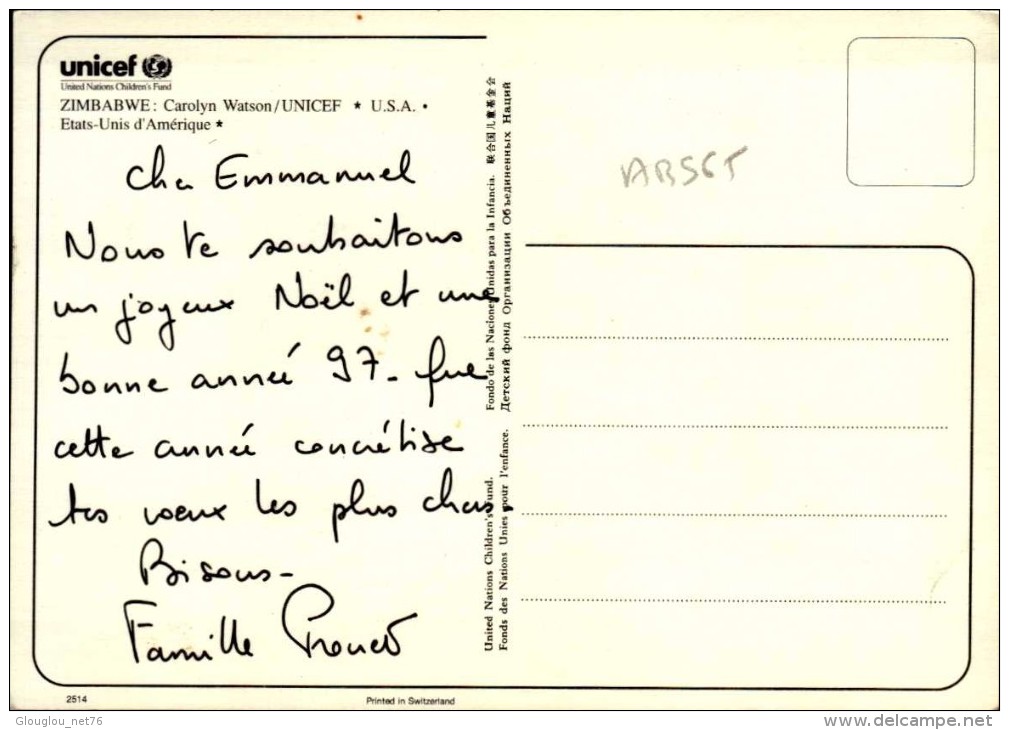 unicef
United Nations Children's Fund
ZIMBABWE: Carolyn Watson/UNICEF * U.S.A. •
Etats-Unis d'Amérique *
Cher Emmanuel
Nous te souhaitons
un joyeux Noël et une
bonne année 97 - Que
cette année concrétise
tes voeux les plus chers.
Bisous -
Famille
2514
Printed in Switzerland
United Nations Children's Fund. Fondo de las Naciones Unidas para la Infancia. 联合国儿童基金会
Fonds des Nations Unies pour l'enfance. Детский фонд Организации Объединенных Наций
Glouglou_net76
delcampe.net